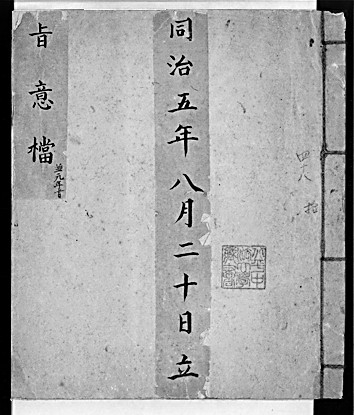 同治五年八月二十日立
旨意檔
四八